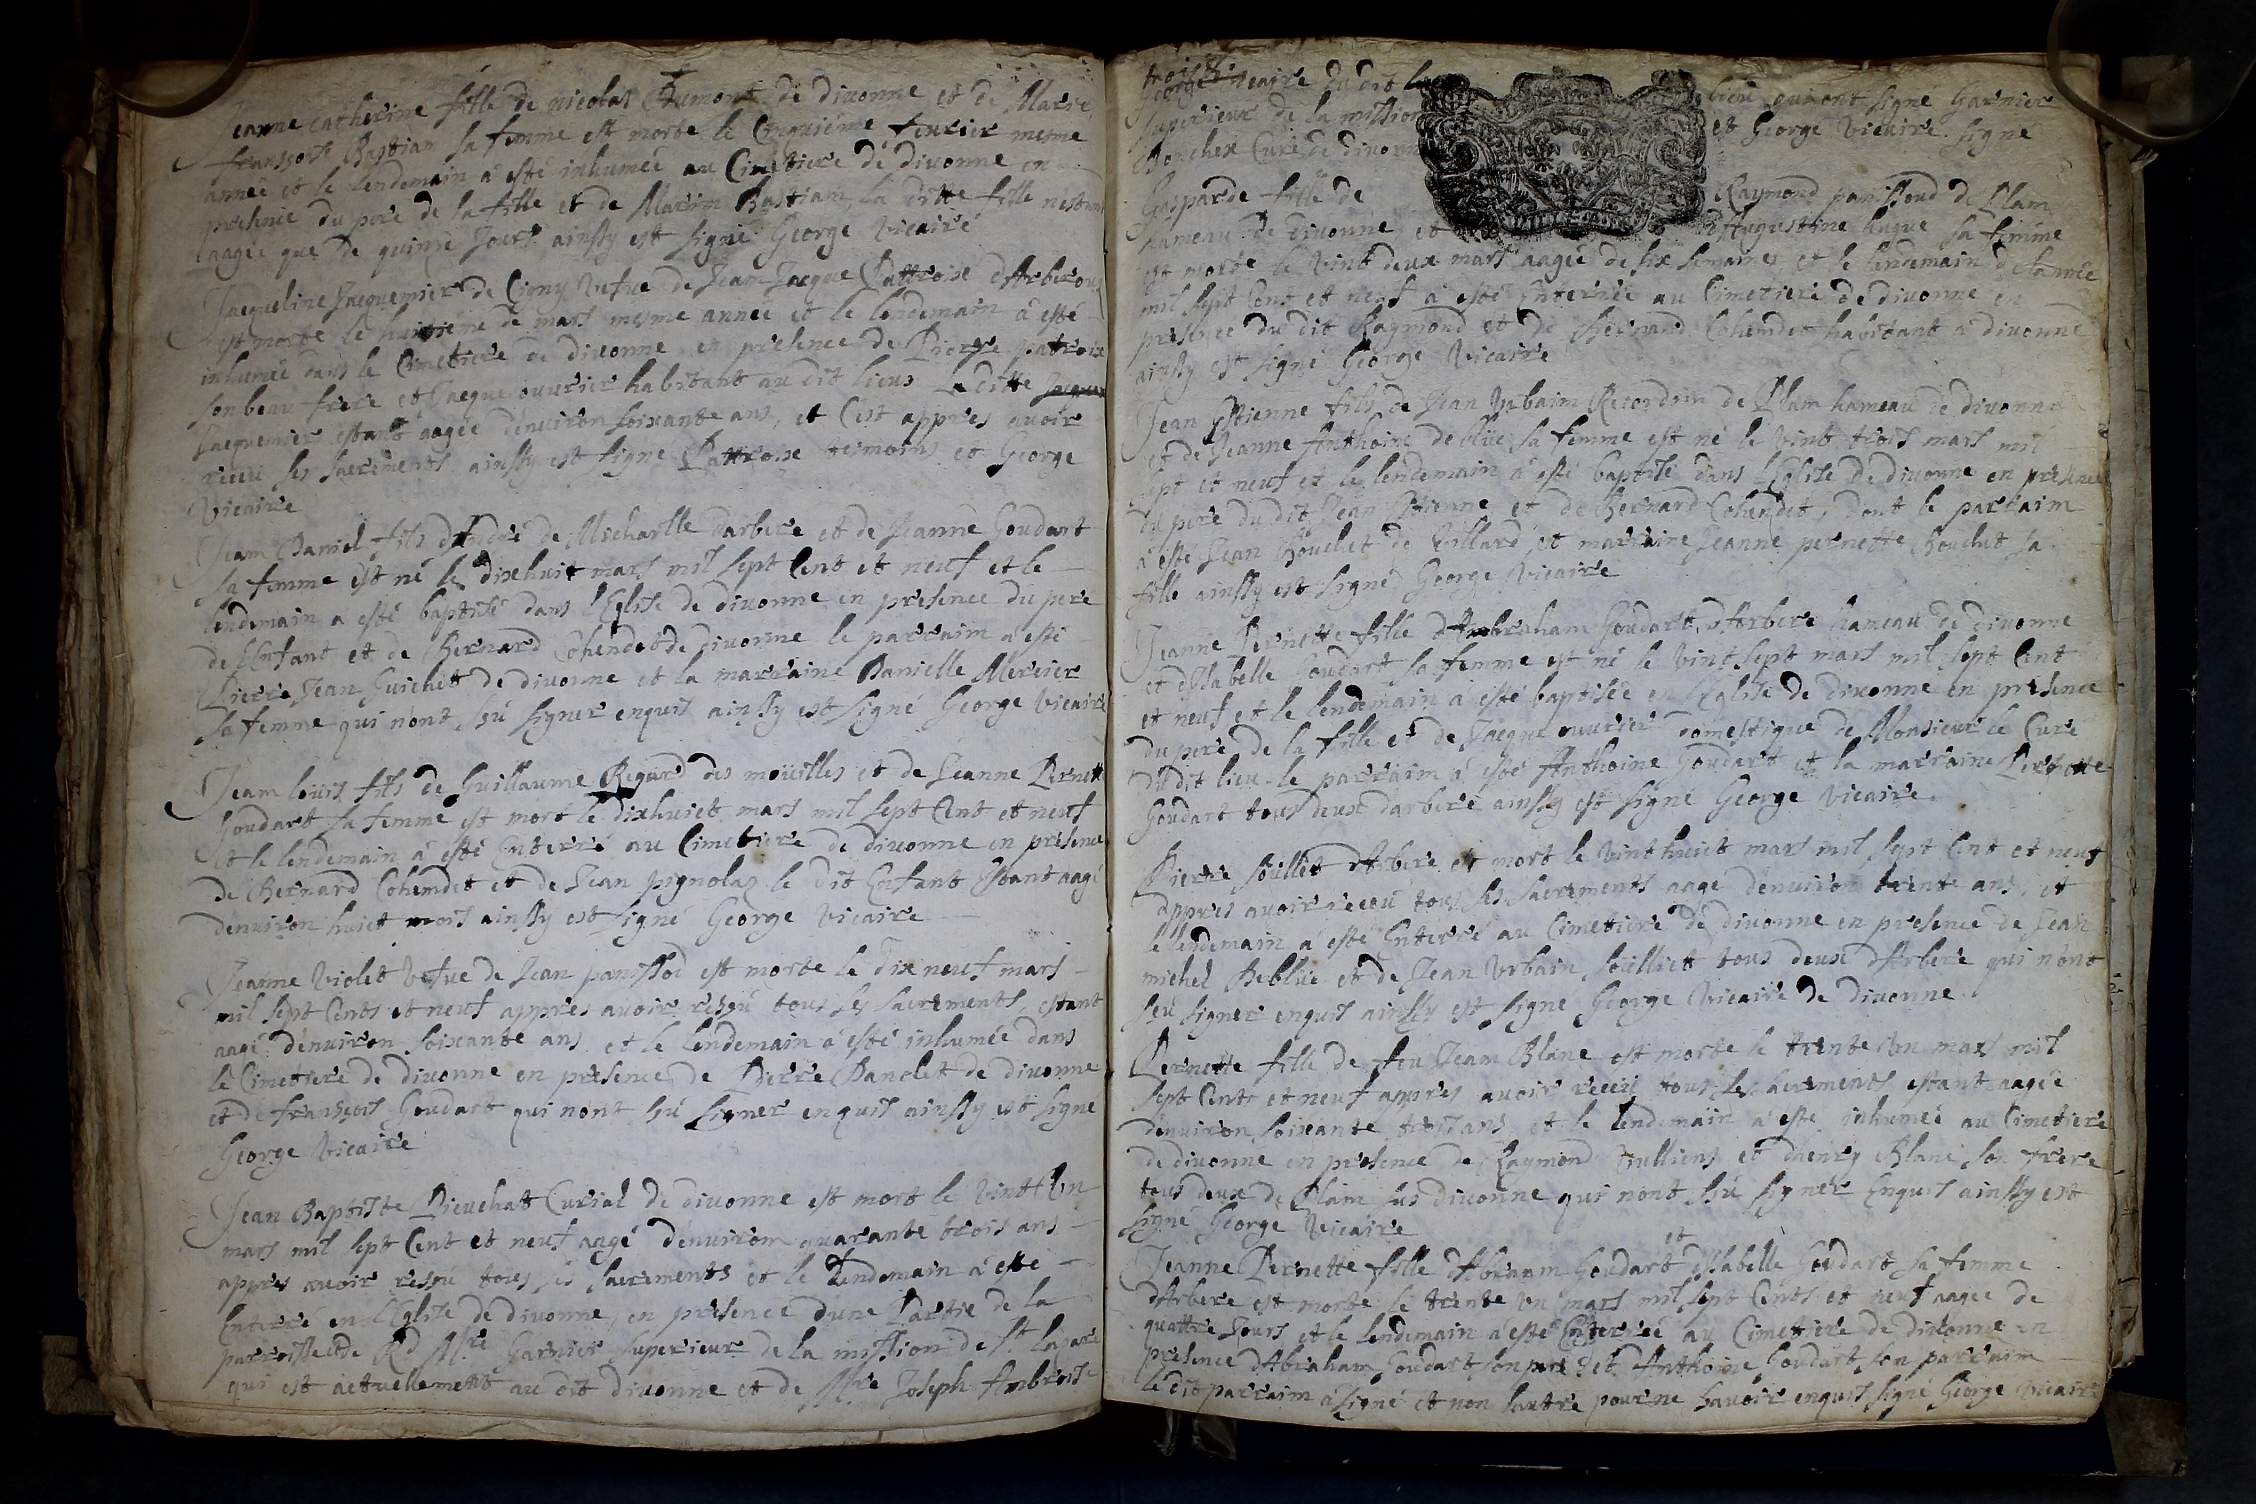 Jeanne catherine fille de nicolas Dumont de divonne et de Marie
franssoise Bastian sa femme est morte le Cinquiéme feurier mesme
année et le lendemain à esté inhumeé au Cimetiere de divonne en
presence du pere de la fille et de Martin Bastian, la ditte fille n'estant
aagée que de quinze Jours ainssy est signé George Vicaire
Jacqueline Jacquemier de Cigny Vefue de Jean Jacque Pattroix d'Arbere
est morte le huitiéme de mars mesme année et le lendemain à esté
inhumeé dans le Cimetiere de divonne en presence de Pierre patroix
son beau frere et Jacque ouurier habitant au dit lieus la ditte
Jacquemier estant aagée d'enuiron soixante ans, et C'est appres auoir
receu ses sacrements ainssy est signé Pattroix tesmoins et George
Vicaire
Jean Daniel fils d'André de Michaille d'arbere et de Jeanne Goudart
sa femme est né le dixhuit mars mil sept Cent et neuf et le
lendemain a esté baptisé dans l'Eglise de divonne en presence du pere
de l'Enfant et de Bernard Cohendet de divonne le parraim à esté
Pierre Jean Guichett de divonne et la marraine Danielle Mercier
sa femme qui n'ont sçu signer enquis ainssy est signé George Vicaire
Jean loüis fils de Guillaume Regard des moüilles et de Jeanne Pernette
Goudart sa femme est mort le dixhuict mars mil sept Cent et neuf
et le lendemain à esté Enterré au Cimetiere de divonne en presence
de Bernard Cohendet et de Jean pignolaz le dit Enfant Estant aagé
d'enuiron huict mois ainssy est signé George Vicaire
Jeanne Violet Vefue de Jean panissod est morte le dix neuf mars
mil sept Cents et neuf appres auoir resçu tous ses sacrements, estant
aagé d'enuiron soixante ans et le lendemain à esté inhumée dans
le Cimetiere de divonne en presence de Pierre Danclet de divonne
et de françois Goudart qui n'ont sçu signer enquis ainssy est signé
George Vicaire
Jean Baptiste Pieuchat Curial de divonne est mort le Vint Un
mars mil sept Cent et neuf aagé d'enuiron quarante trois ans
appres auoir resçu tous ses sacrements et le Lendemain à esté
Enterré en l'Eglise de divonne, en presence d'une Partie de la
parroisse et de Rd Mre Garnier superieur de la mission de St lasare
qui est actuellement au dit divonne et de Mre Joseph Ambroise
George Vicaire du dit lieu qui ont signé Garnier
superieur de la mission et George Vicaire. signé
Bonchex Curé de divonne
Gasparde fille de Raymond panissoud de Plam
hameau de divonne et d'Augustine hugue sa femme
est morte le Vint deux mars aageé de six semaines et le lendemain de l'année
mil sept Cent et neuf à esté Enterreé au Cimetiere de divonne en
presence du dit Raymond et de Bernard Cohendet habitant à divonne
ainssy est signé George Vicaire
Jean Estienne fils de Jean Vrbain Recordon de Plam hameau de divonne
et de Jeanne Anthoine deblüe sa femme est né le Vint trois mars mil
sept et neuf et le lendemain à esté baptisé dans l'Eglise de divonne en presence
du pere du dit Jean Estienne et de Bernard Cohendet, dont le parraim
à esté Jean Bouchet de Villard et marraine Jeanne pernette Bouchet sa
fille ainssy est signé George Vicaire
Jeanne Pernette fille d'Abraham Goudart, d'Arbere hameau de divonne
et d'Isabelle Goudart sa femme est né le Vint sept mars mil sept Cent
et neuf et le lendemain à esté baptisée en l'Eglise de divonne en presence
du pere de la fille et de Jacque ouurier domestique de Monsieur le Curé
du dit lieu. le parraim à esté Anthoine Goudart et la marraine Pernette
Goudart tous deux d'arbere ainssy est signé George Vicaire.
Pierre soüillet d'Arbere est mort le Vint huict mars mil sept Cent et neuf
appres auoir receu tous ses sacrements aagé d'enuiron trente ans, et
le lendemain à esté Enterré au Cimetiere de divonne en presence de Jean
michel Deblüe et de Jean Vrbain soüilliett tous deux d'Arbere qui n'ont
sçu signer enquis ainssy est signé George Vicaire de divonne.
Pernette fille de feu Jean Blanc est morte le trente Un mars mil
sept Cents et neuf appres auoir receu tous ses sacrements estant aagée
d'enuiron soixante trois ans et le lendemain à esté inhumeé au Cimetiere
de divonne en presence de Raymond Vulliens et d'henry Blanc son frere
tous deux de Plam sus divonne qui n'ont sçu signer Enquis ainssy est
signé George Vicaire
Jeanne Pernette fille d'Abraam Goudart et d'Isabelle Goudart sa femme
d'Arbere est morte le trente Un mars mil sept Cents et neuf aageé de
quattre Jours et le lendemain à esté Enterreé au Cimetiere de divonne en
presence d'Abraham Goudart son pere et d'Anthoine Goudart son parraim
le dit parraim à signé et non l'autre pour ne sçavoir enquis signé George Vicaire